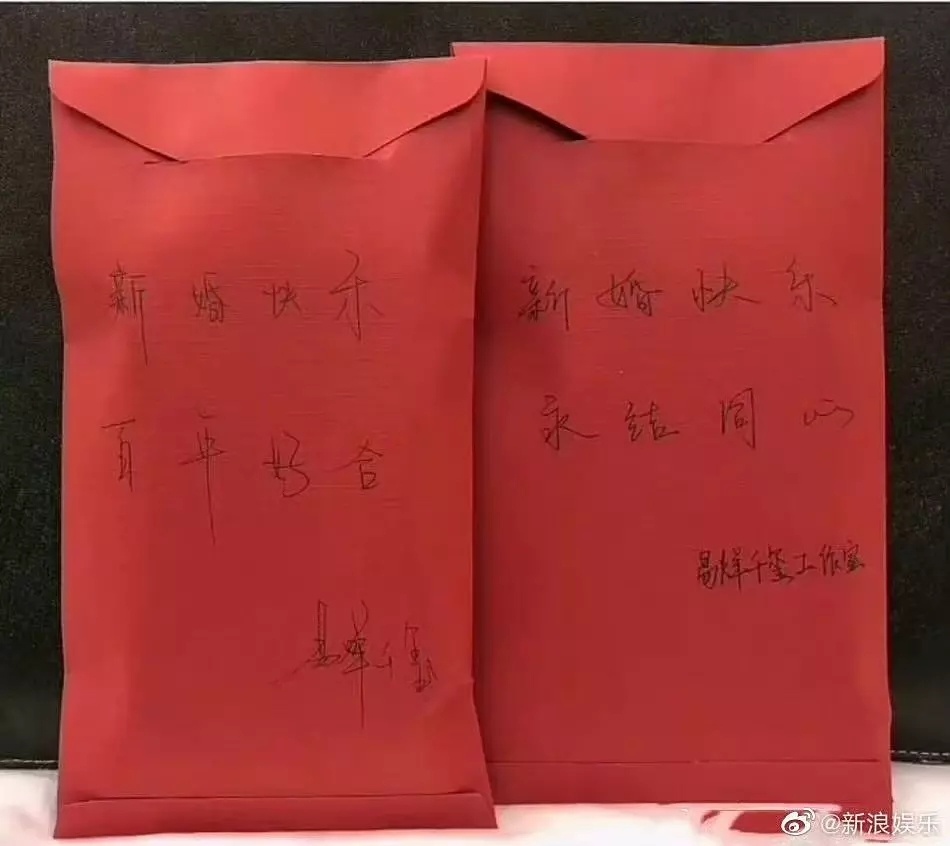 新婚快乐
百年好合
易烊千玺
新婚快乐
永结同心
易烊千玺工作室
@新浪娱乐